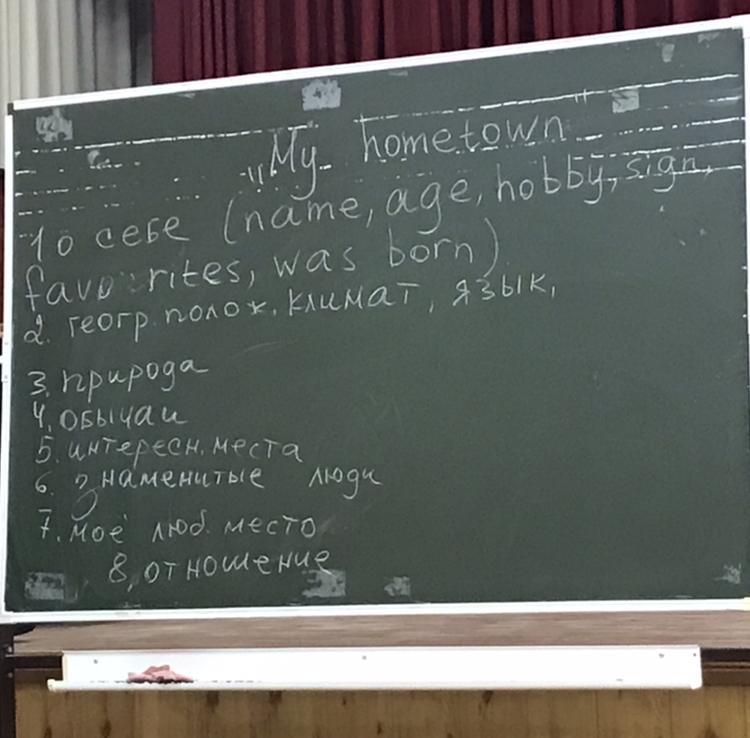 "My hometown"
1 о себе (name, age, hobby, sign,
favourites, was born)
2. геогр. полож. климат, язык,
3. природа
4. обычаи
5. интересн. места
6. знаменитые люди
7. моё люб. место
8. отношение